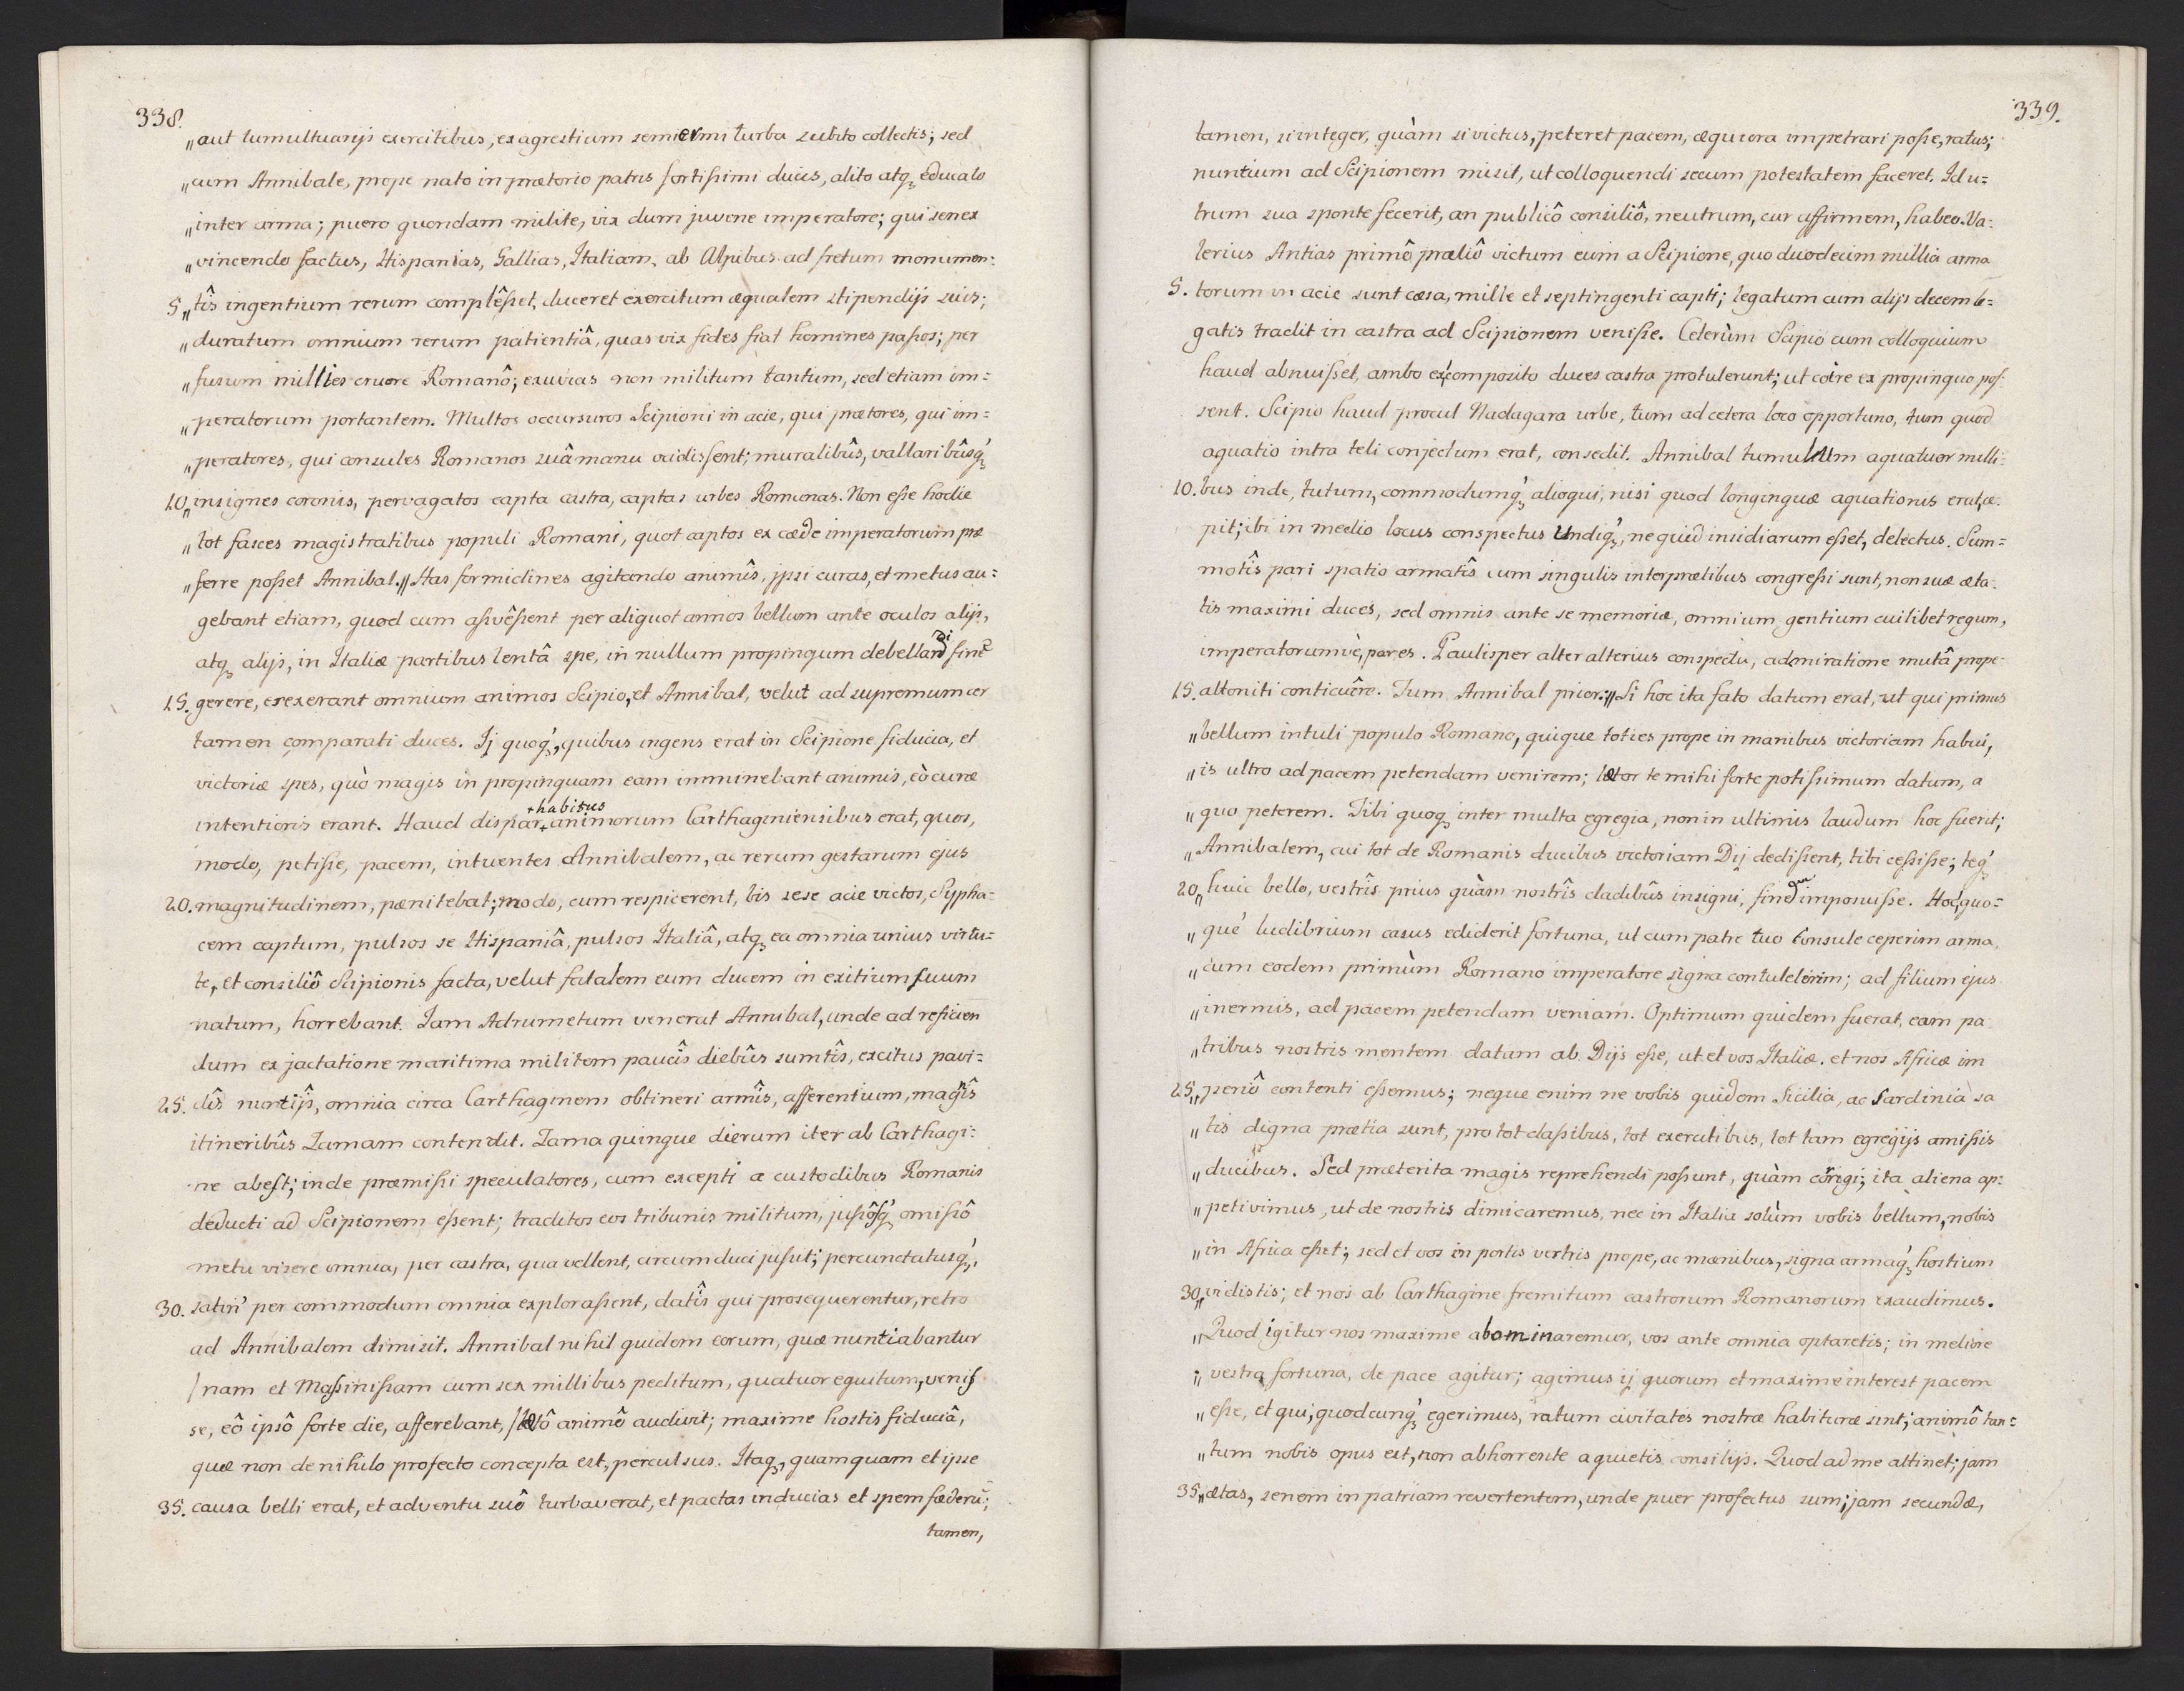 338.
„aut tumultuarijs exercitibus, ex agrestium semiermi turba subito collectis; sed
„cum Annibale, prope nato in prætorio patris fortissimi ducis, alito atq; educato
„inter arma; puero quondam milite, vix dum juvene imperatore; qui senex
„vincendo factus, Hispanias, Gallias, Italiam, ab Alpibus ad fretum monumen=
5 „tîs ingentium rerum complêsset, duceret exercitum æqualem stipendijs suis;
„duratum omnium rerum patientiâ, quas vix fides fiat homines passos; per
„fusum millies cruore Romanô; exuvias non militum tantum, sed etiam im=
„peratorum portantem. Multos occursuros Scipioni in acie, qui prætores, qui im=
„peratores, qui consules Romanos suâ manu occidissent; muralibûs, vallaribûsq;
10 „insignes coronis, pervagatos capta castra, captas urbes Romanas. Non esse hodie
„tot fasces magistratibus populi Romani, quot captos ex cæde imperatorum præ
„ferre posset Annibal.„ Has formidines agitando animîs, ipsi curas, et metus au=
gebant etiam, quod cum assuêssent per aliquot annos bellum ante oculos alijs,
atq; alijs, in Italiæ partibus lentâ spe, in nullum propinqum debellandi finē
15. gerere, erexerant omnium animos Scipio, et Annibal, velut ad supremum cer
tamen comparati duces. Ij quoq;, quibus ingens erat in Scipione fiducia, et
victoriæ spes, quò magis in propinquam eam imminebant animis, eò curæ
intentioris erant. Haud dispar + habitus animorum Carthaginiensibus erat, quos,
modo, petisse, pacem, intuentes Annibalem, ac rerum gestarum ejus
20. magnitudinem, pœnitebat; modo, cum respicerent, bis sese acie victos, Sypha=
cem captum, pulsos se Hispaniâ, pulsos Italiâ, atq; ea omnia unius virtu=
te, et consiliô Scipionis facta, velut fatalem eum ducem in exitium suum
natum, horrebant. Jam Adrumetum venerat Annibal, unde ad reficien
dum ex jactatione maritima militem paucîs diebûs sumtîs, excitus pavi=
25. dîs nuntijs, omnia circa Carthaginem obtineri armîs, afferentium, magnîs
itineribûs Zamam contendit. Zama quinque dierum iter ab Carthagi=
ne abest; inde præmissi speculatores, cum excepti a custodibus Romanis
deducti ad Scipionem essent; traditos eos tribunis militum, jussôsq; omissô
metu visere omnia, per castra, qua vellent, circumduci jussit; percunctatusq;,
30. satin' per commodum omnia explorassent, datîs qui prosequerentur, retro
ad Annibalem dimisit. Annibal nihil quidem eorum, quæ nuntiabantur
/nam et Massinissam cum sex millibus peditum, quatuor equitum, venis
se, eô ipsô forte die, afferebant,/ lætô animô audivit; maxime hostis fiduciâ,
quæ non de nihilo profecto concepta est, perculsus. Itaq;, quamquam et ipse
35. causa belli erat, et adventu suô turbaverat, et pactas inducias et spem fœderū;
tamen,
339.
tamen, si integer, quàm si victus, peteret pacem, æquiora impetrari posse, ratus;
nuntium ad Scipionem misit, ut colloquendi secum potestatem faceret. Id u=
trum sua sponte fecerit, an publicô consiliô, neutrum, cur affirmem, habeo. Va=
lerius Antias primô præliô victum eum a Scipione, quo duodecim millia arma
5. torum in acie sunt cæsa, mille et septingenti capti; legatum cum alijs decem le=
gatis tradit in castra ad Scipionem venisse. Ceterùm Scipio cum colloquium
haud abnuisset, ambo ex composito duces castra protulerunt; ut coire ex propinquo pos=
sent. Scipio haud procul Nadagara urbe, tum ad cetera loco opportuno, tum quod
aquatio intra teli conjectum erat, consedit. Annibal tumulum a quatuor milli=
10. bus inde, tutum, commodumq; alioqui, nisi quod longinquæ aquationis erat, ce=
pit; ibi in medio locus conspectus undiq;, ne quid insidiarum esset, delectus. Sum=
motîs pari spatio armatîs cum singulis interpretibus congressi sunt, non suæ æta=
tis maximi duces, sed omnis ante se memoriæ, omnium gentium cuilibet regum,
imperatorumvè, pares. Paulisper alter alterius conspectu, admiratione mutâ prope
15. attoniti conticuêre. Tum Annibal prior:„ Si hoc ita fato datum erat, ut qui primus
„bellum intuli populo Romano, quique toties prope in manibus victoriam habui,
„is ultro ad pacem petendam venirem; lætor te mihi forte potissimum datum, a
„quo peterem. Tibi quoq; inter multa egregia, non in ultimis laudum hoc fuerit;
„Annibalem, cui tot de Romanis ducibus victoriam Dij dedissent, tibi cessisse; teq;
20 „huic bello, vestrîs prius quàm nostrîs cladibûs insigni, finem imposuisse. Hoc, quo=
„què ludibrium casus ediderit fortuna, ut cum patre tuo Consule ceperim arma,
„cum eodem primùm Romano imperatore signa contulerim; ad filium ejus
„inermis, ad pacem petendam veniam. Optimum quidem fuerat, eam pa=
„tribus nostris mentem datam ab Dijs esse, ut et vos Italiæ, et nos Africæ im
25 „periô contenti essemus; neque enim ne vobis quidem Sicilia, ac Sardinia sa
„tis digna prætia sunt, pro tot classibus, tot exercitibus, tot tam egregijs amissis
„ducibus. Sed præterita magis reprehendi possunt, quàm corrigi; ita aliena ap=
„petivimus, ut de nostris dimicaremus, nec in Italia solùm vobis bellum, nobis
„in Africa esset; sed et vos in portis vertris prope, ac mœnibus, signa armaq; hostium
30 „vidistis; et nos ab Carthagine fremitum castrorum Romanorum exaudimus.
„Quod igitur nos maxime abominaremur, vos ante omnia optaretis; in meliore
„vestra fortuna, de pace agitur; agimus ij quorum et maxime interest pacem
„esse, et qui, quodcunq; egerimus, ratum civitates nostræ habituræ sint; animô tan=
„tum nobis opus est, non abhorrente a quietis consilijs. Quod ad me attinet; jam
35 „ætas, senem in patriam revertentem, unde puer profectus sum; jam secundæ,